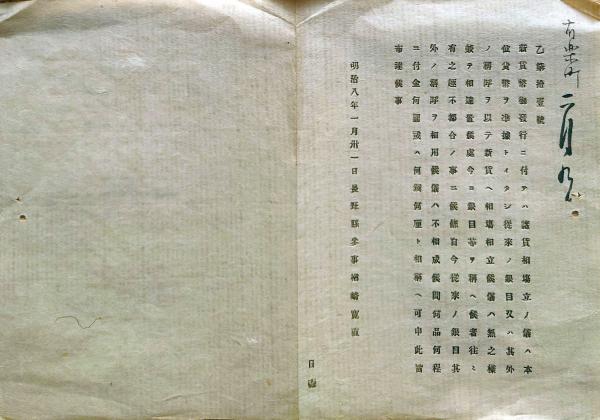 有楽町
二月九
乙第拾壹號
新貨幣御發行ニ付テハ諸貨相場立ノ儀ハ本
位貨幣ヲ準據トイタシ從來ノ銀目又ハ其外
ノ稱呼ヲ以テ新貨ヘ相場相立候儀ハ無之樣
兼テ相達置候處今ニ銀目等ヲ稱ヘ候者往々
有之趣不都合ノ事ニ候條自今從來ノ銀目其
外ノ稱呼ヲ相用候儀ハ不相成候間何品何程
ニ付金何圓或ハ何錢何厘ト相稱ヘ可申此旨
布達候事
明治八年一月卅一日長野縣參事楢崎寬直